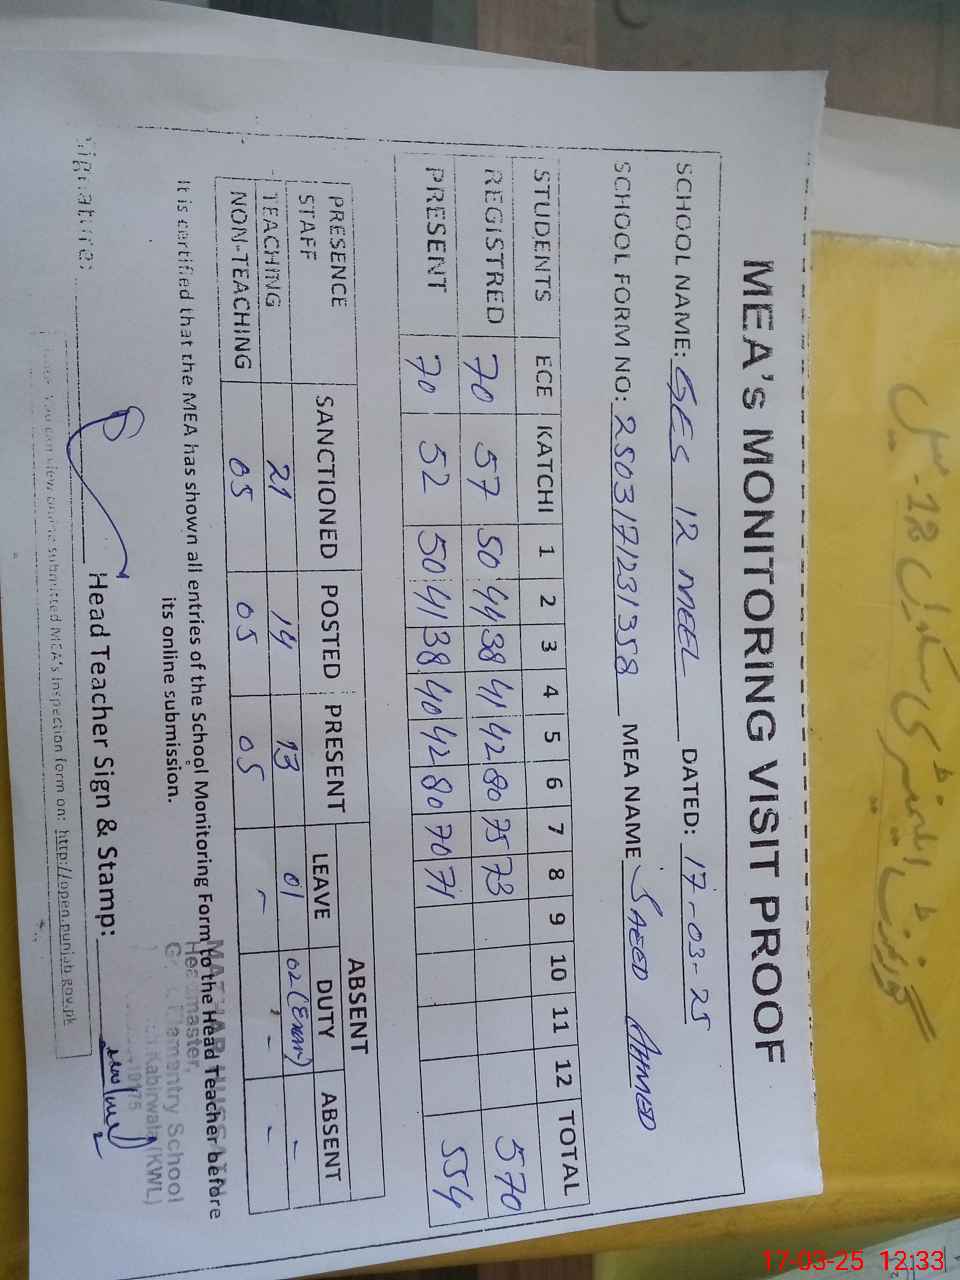 MEA's MONITORING VISIT PROOF
SCHOOL NAME: GES 12 MEEL DATED: 17-03-25
SCHOOL FORM NO: 2503171231358 MEA NAME SAEED AHMED
STUDENTS ECE KATCHI 1 2 3 4 5 6 7 8 9 10 11 12 TOTAL
REGISTRED 70 57 50 44 38 41 42 80 75 73 570
PRESENT 70 52 50 41 38 40 42 80 70 71 554
PRESENCE STAFF SANCTIONED POSTED PRESENT ABSENT
LEAVE DUTY ABSENT
TEACHING 21 14 13 01 02 (Exam) -
NON-TEACHING 05 05 05 - - -
It is certified that the MEA has shown all entries of the School Monitoring Form to the Head Teacher before
its online submission.
Headmaster,
Elementry School
Kabirwala (KWL)
Signature: Head Teacher Sign & Stamp:
You can view online submitted MEA's inspection form on: http://open.punjab.gov.pk
گورنمنٹ ایلیمنٹری سکول 12 میل
17-03-25 12:33